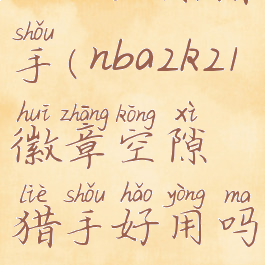 shǒu
手(nba2k21
huī zhāng kōng xì
徽章空隙
liè shǒu hǎo yòng ma
猎手好用吗